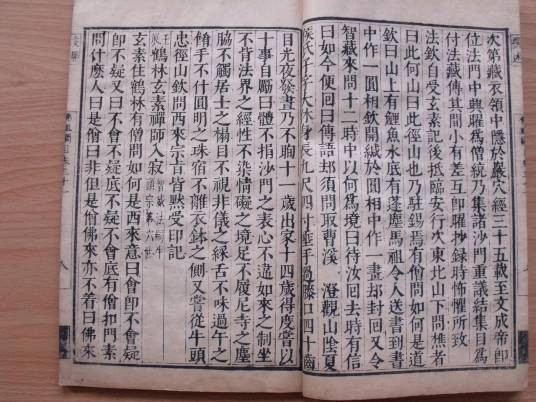 次第藏衣領中隱於巖穴經三十五載至文成帝即
位法門中興曜爲僧統乃集諸沙門重議結集目爲
付法藏傳其間小有差互卽曜抄録時怖懼所致
法欽自受玄素記後抵臨安行次東北山下問樵者
曰此何山曰此徑山也乃駐錫焉有僧問如何是道
欽曰山上有鯉魚水底有蓬塵馬祖令人送書到書
中作一圓相欽開緘於圓相中作一畫却封回又令
智藏來問十二時中以何爲境曰待汝回去時有信
曰如今便回曰傳語却須問取曹溪 澄觀山陰夏
侯氏子字大休身長九尺四寸垂手過膝口四十齒
目光夜發晝乃不瞬十一歲出家十四歲得度嘗以
十事自勵曰體不捐沙門之表心不違如來之制坐
不背法界之經性不染情礙之境足不履尼寺之塵
脇不觸居士之榻目不視非儀之綵舌不味過午之
餚手不什圓明之珠宿不離衣鉢之側又嘗從牛頭
忠徑山欽問西來宗旨皆黙受印記
鶴林玄素禪師入寂
玄素住鶴林有僧問如何是西來意曰會卽不會疑
卽不疑又曰不會不疑底不疑不會底有僧扣門素
問什麽人曰是僧曰非但是僧佛來亦不着曰佛來